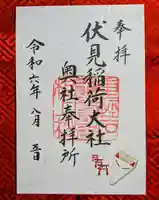 奉拝
伏見稲荷大社
奥社奉拝所
令和六年八月五日